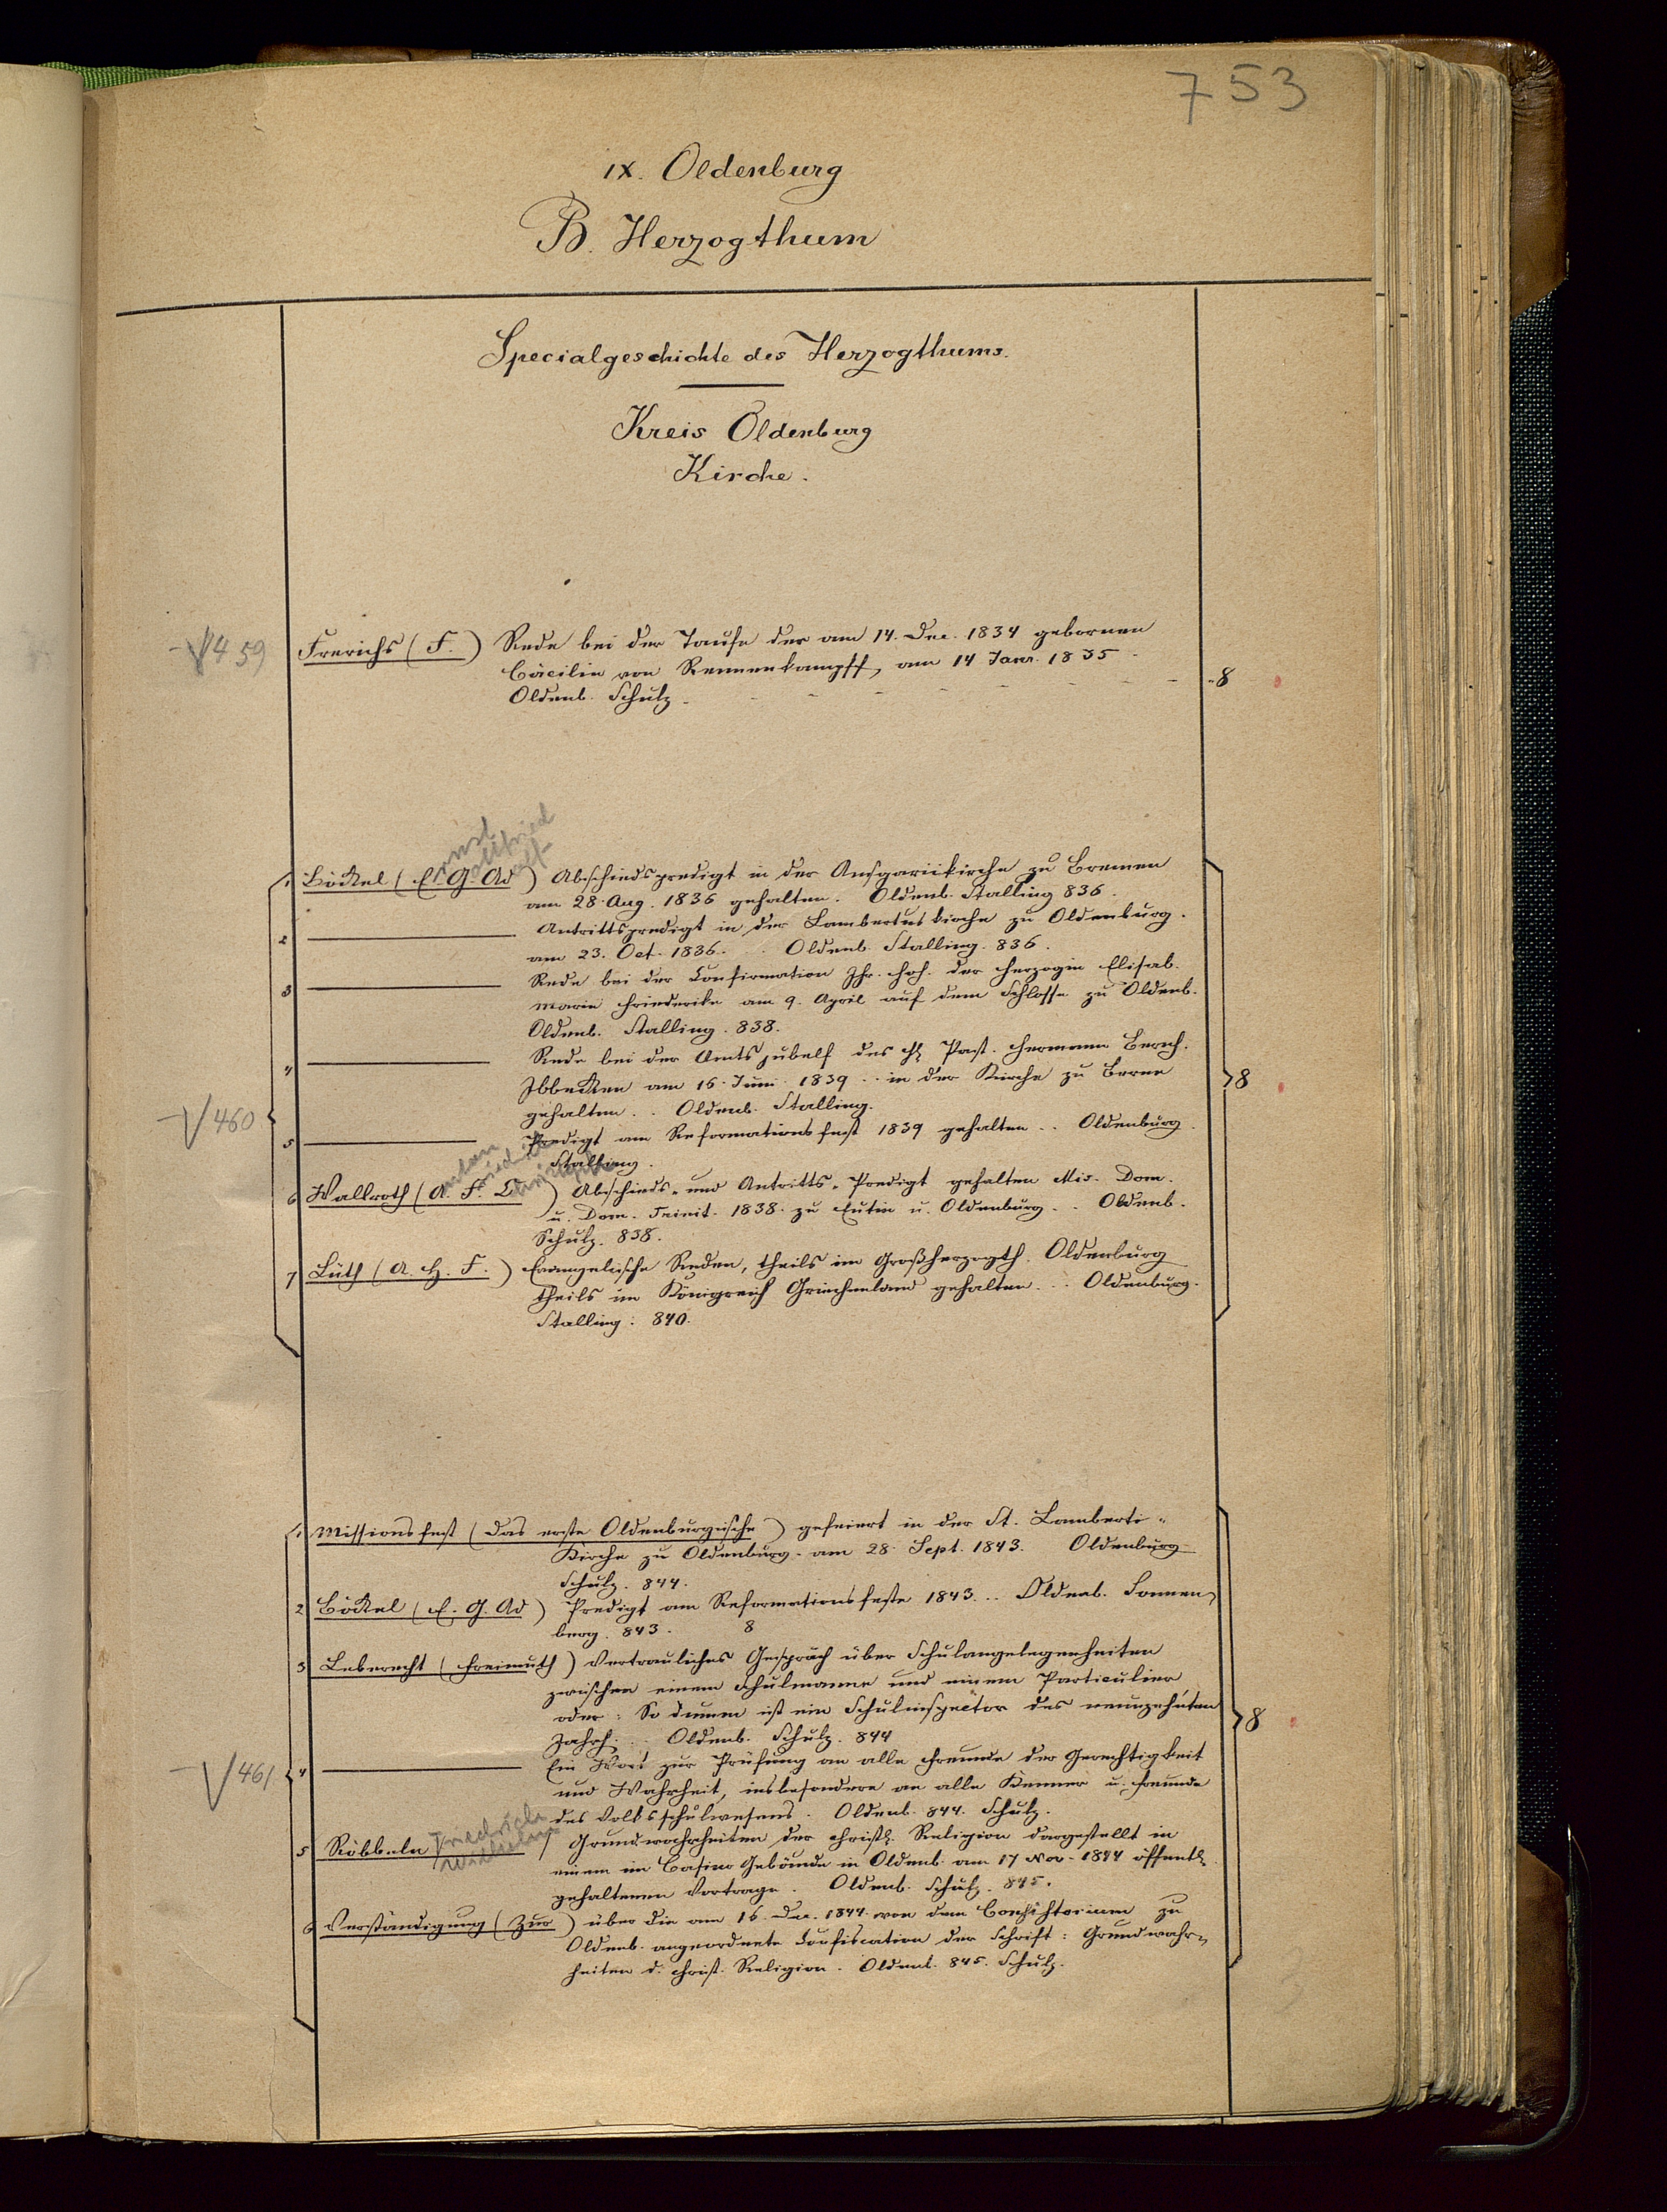 753
IX. Oldenburg
B. Herzogthum
Specialgeschichte des Herzogthums.
Kreis Oldenburg
Kirche.
459 Frerichs (F.) Rede bei der Taufe der am 14. Dec. 1834 gebornen
Cäcilie von Rennenkampff, am 14 Janr. 1835
Oldenb. Schulz. - - - - - - - - 8
Ernst Gottfried Adolf
1 Böckel (E. G. Ad) Abschiedspredigt in der Ansgariikirche zu Bremen
am 28. Aug. 1836 gehalten. Oldenb. Stalling 836.
2 ——— Antrittspredigt in der Lambertuskirche zu Oldenburg.
am 23. Oct. 1836. .. Oldenb. Stalling. 836.
3 ——— Rede bei der Confirmation Ihr. Hoh. der Herzogin Elisab.
Marie Friederike am 9. April auf dem Schlosse zu Oldenb.
Oldenb. Stalling. 838.
4 ——— Rede bei der Amtsjubelf des Past. Hermann Berech.
Ibbecken am 16. Juni 1839 .. in der Kirche zu Berne 8
460 gehalten .. Oldenb. Stalling.
5 ——— Predigt am Reformationsfest 1839 gehalten .. Oldenburg.
Stalling.
6 Wallroth (A. F. Ch) Abschieds- und Antritts-Predigt gehalten Mis. Dom.
u. Dom. Trinit. 1838. zu Eutin u. Oldenburg .. Oldenb.
Schulz. 838.
7 Lüth (A. H. F.) Evangelische Reden, theils im Großherzogth. Oldenburg
theils im Königreich Griechenland gehalten .. Oldenburg.
Stalling: 840.
1 Missionsfest (Das erste Oldenburgische) gefeiert in der St. Lamberti-
Kirche zu Oldenburg. am 28. Sept. 1843. Oldenburg
Schulz. 844.
2 Böckel (E. G. Ad) Predigt am Reformationsfeste 1843 ... Oldenb. Sonnen-
berg. 843. 8
3 Leberecht (Freimuth) Vertrauliches Gespräch über Schulangelegenheiten
zwischen einem Schulmanne und einem Particulier,
oder: So dumm ist ein Schulinspector des neunzehnten
Jahrh. .. Oldenb. Schulz. 844 8
461 4 ——— Ein Wort zur Prüfung an alle Freunde der Gerechtigkeit
und Wahrheit, insbesondere an alle Kenner u. Freunde
des Volksschulwesens. Oldenb. 844. Schulz.
5 Röbbeln Friedrich Wilhelm) Grundwahrheiten der christl. Religion dargestellt in
einem im Casino Gebäude in Oldenb. am 17 Nov. 1844 öffentl.
gehaltenen Vortrage. Oldenb. Schulz. 845.
6 Verständigung (Zur) über die am 16. Dec. 1844. von dem Consistorium zu
Oldenb. angeordnete Confiscation der Schrift: Grundwahr-
heiten d. christ. Religion. Oldenb. 845. Schulz.